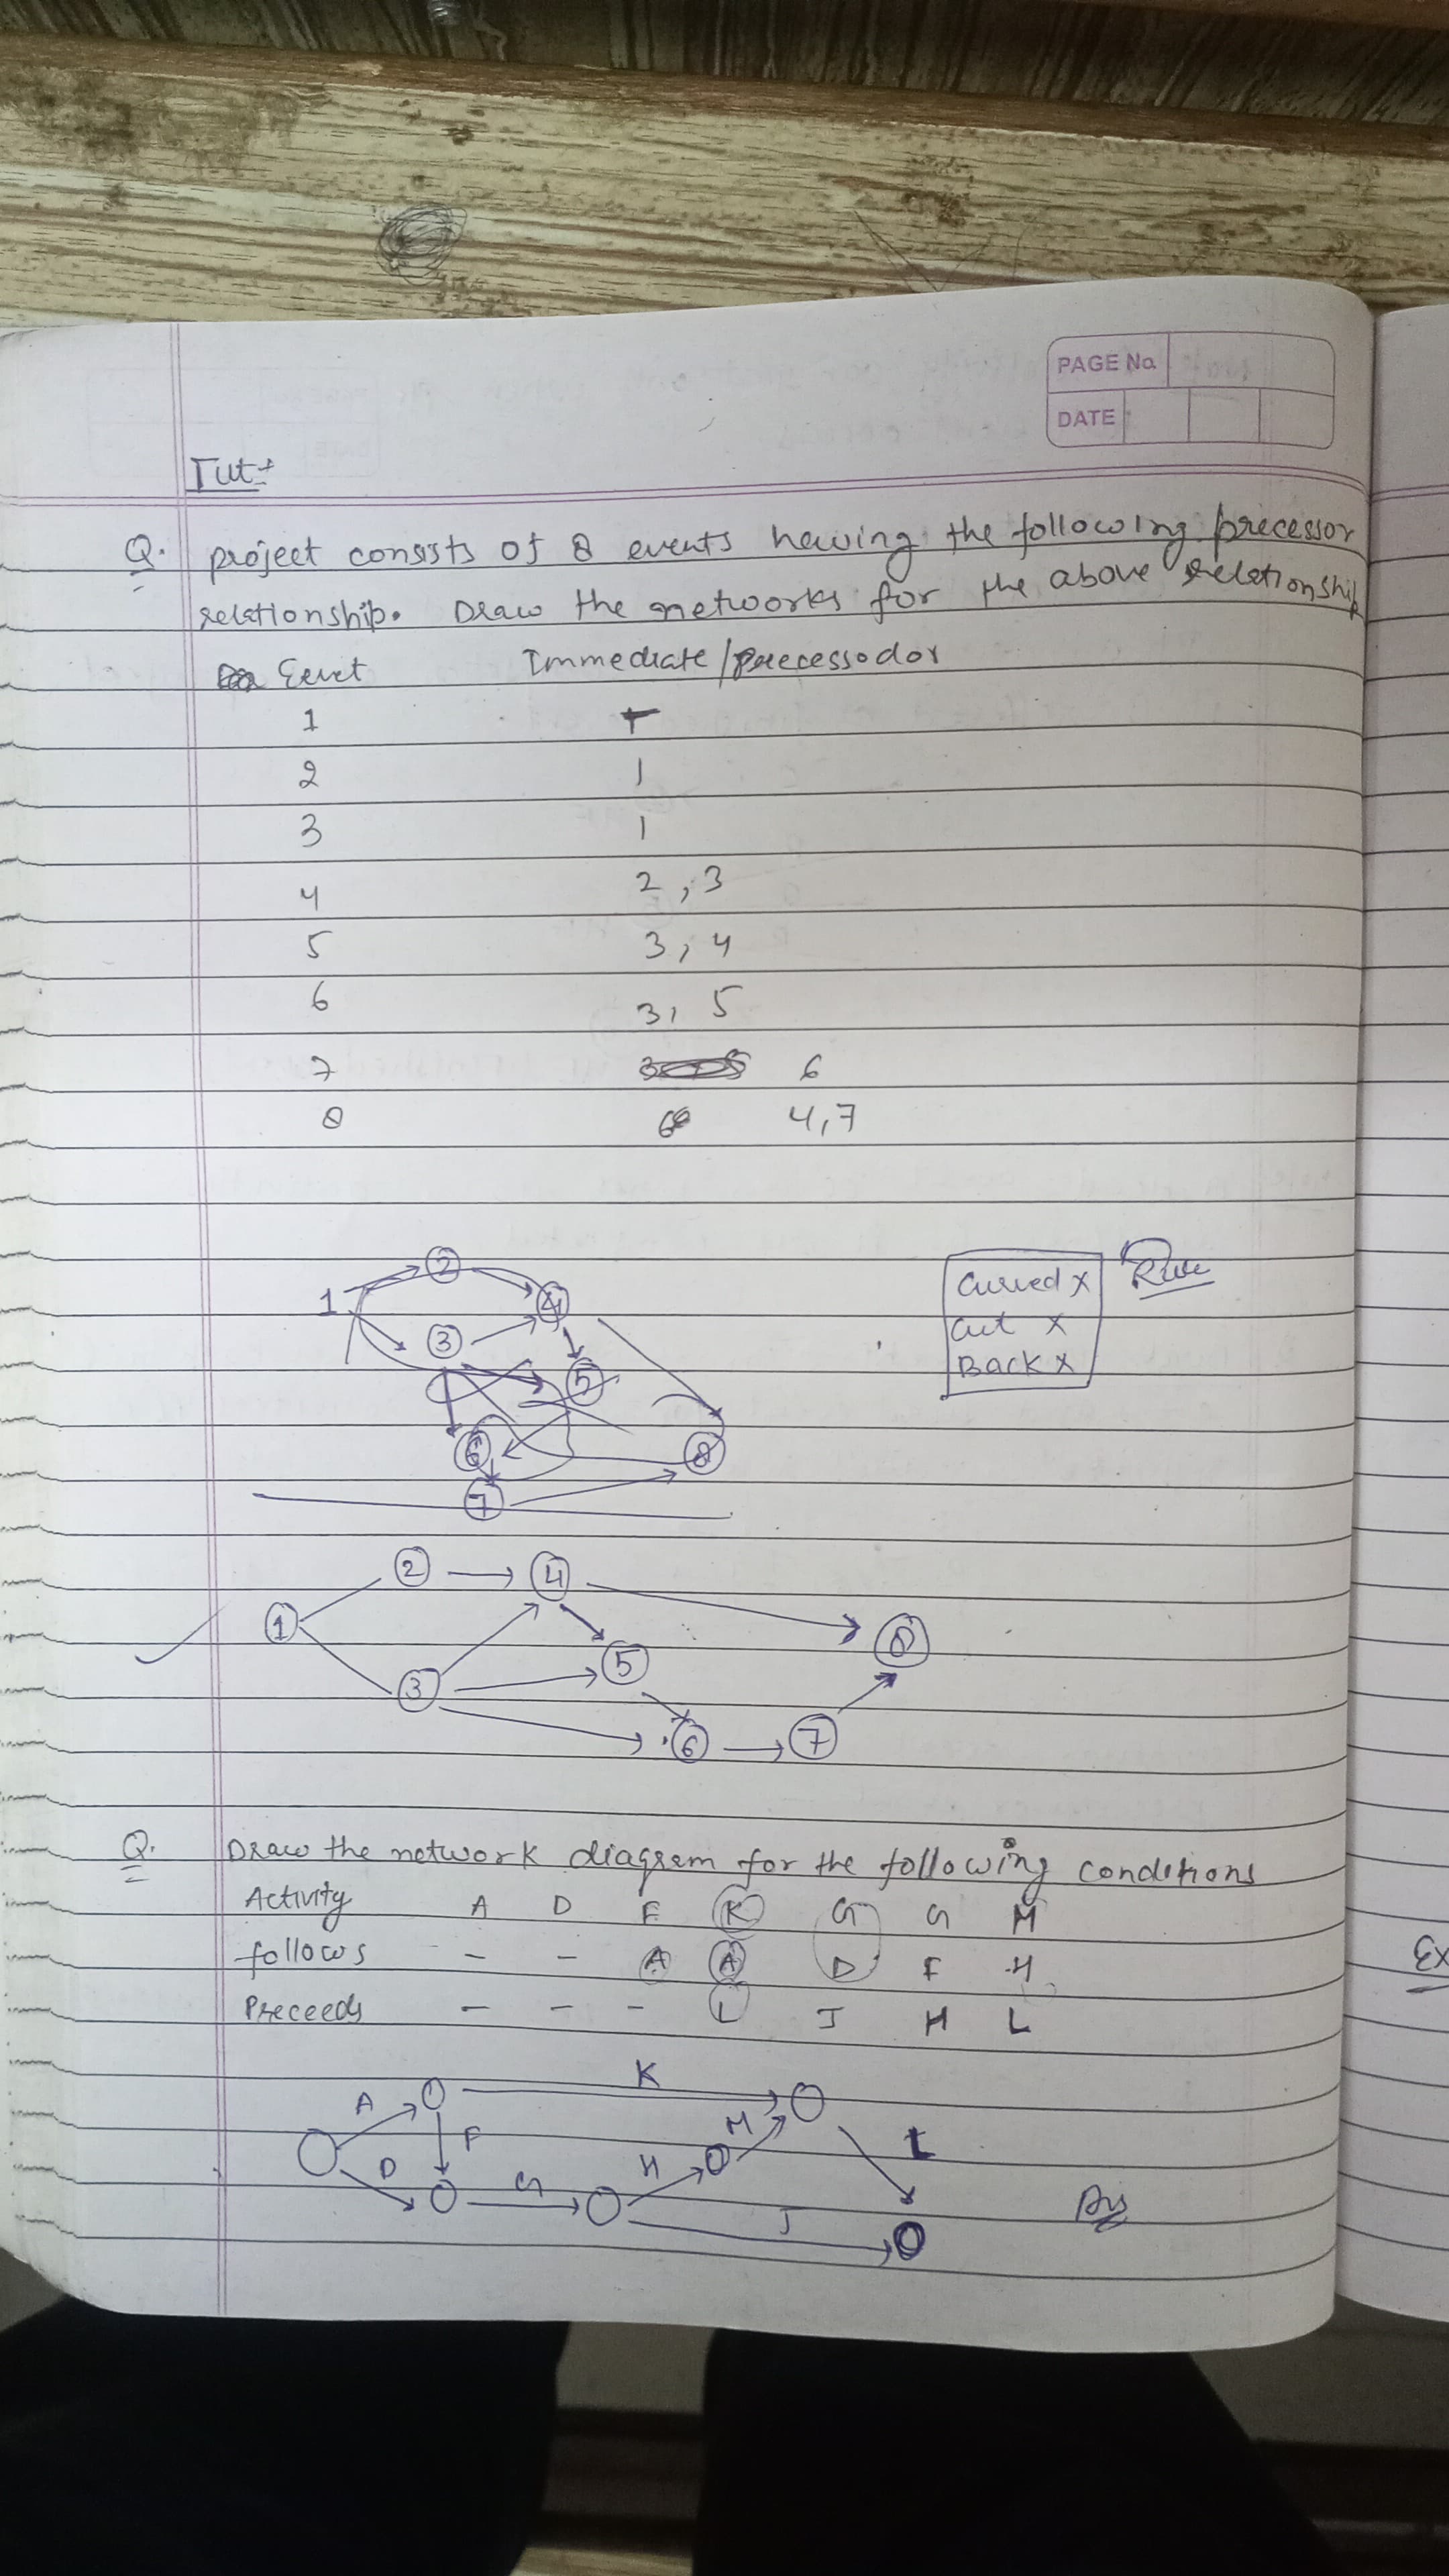 PAGE No.
DATE
Tut:-
Q. project consists of 8 events having the following precessor
relationship. Draw the networks for the above relationship
Eevet Immediate/precessodor
1 -
2 1
3 1
4 2, 3
5 3, 4
6 3, 5
7 6
8 4,7
2
1 4
3
5
6 8
7
Curved x Rule
Cut x
Back x
2 4
1 8
5
3
6 7
Q. Draw the network diagram for the following conditions
Activity A D F K G G M
follows - - A A D F H
Preceeds - - - L J H L
K
A
F M L
D G H
J
Ans
Ex